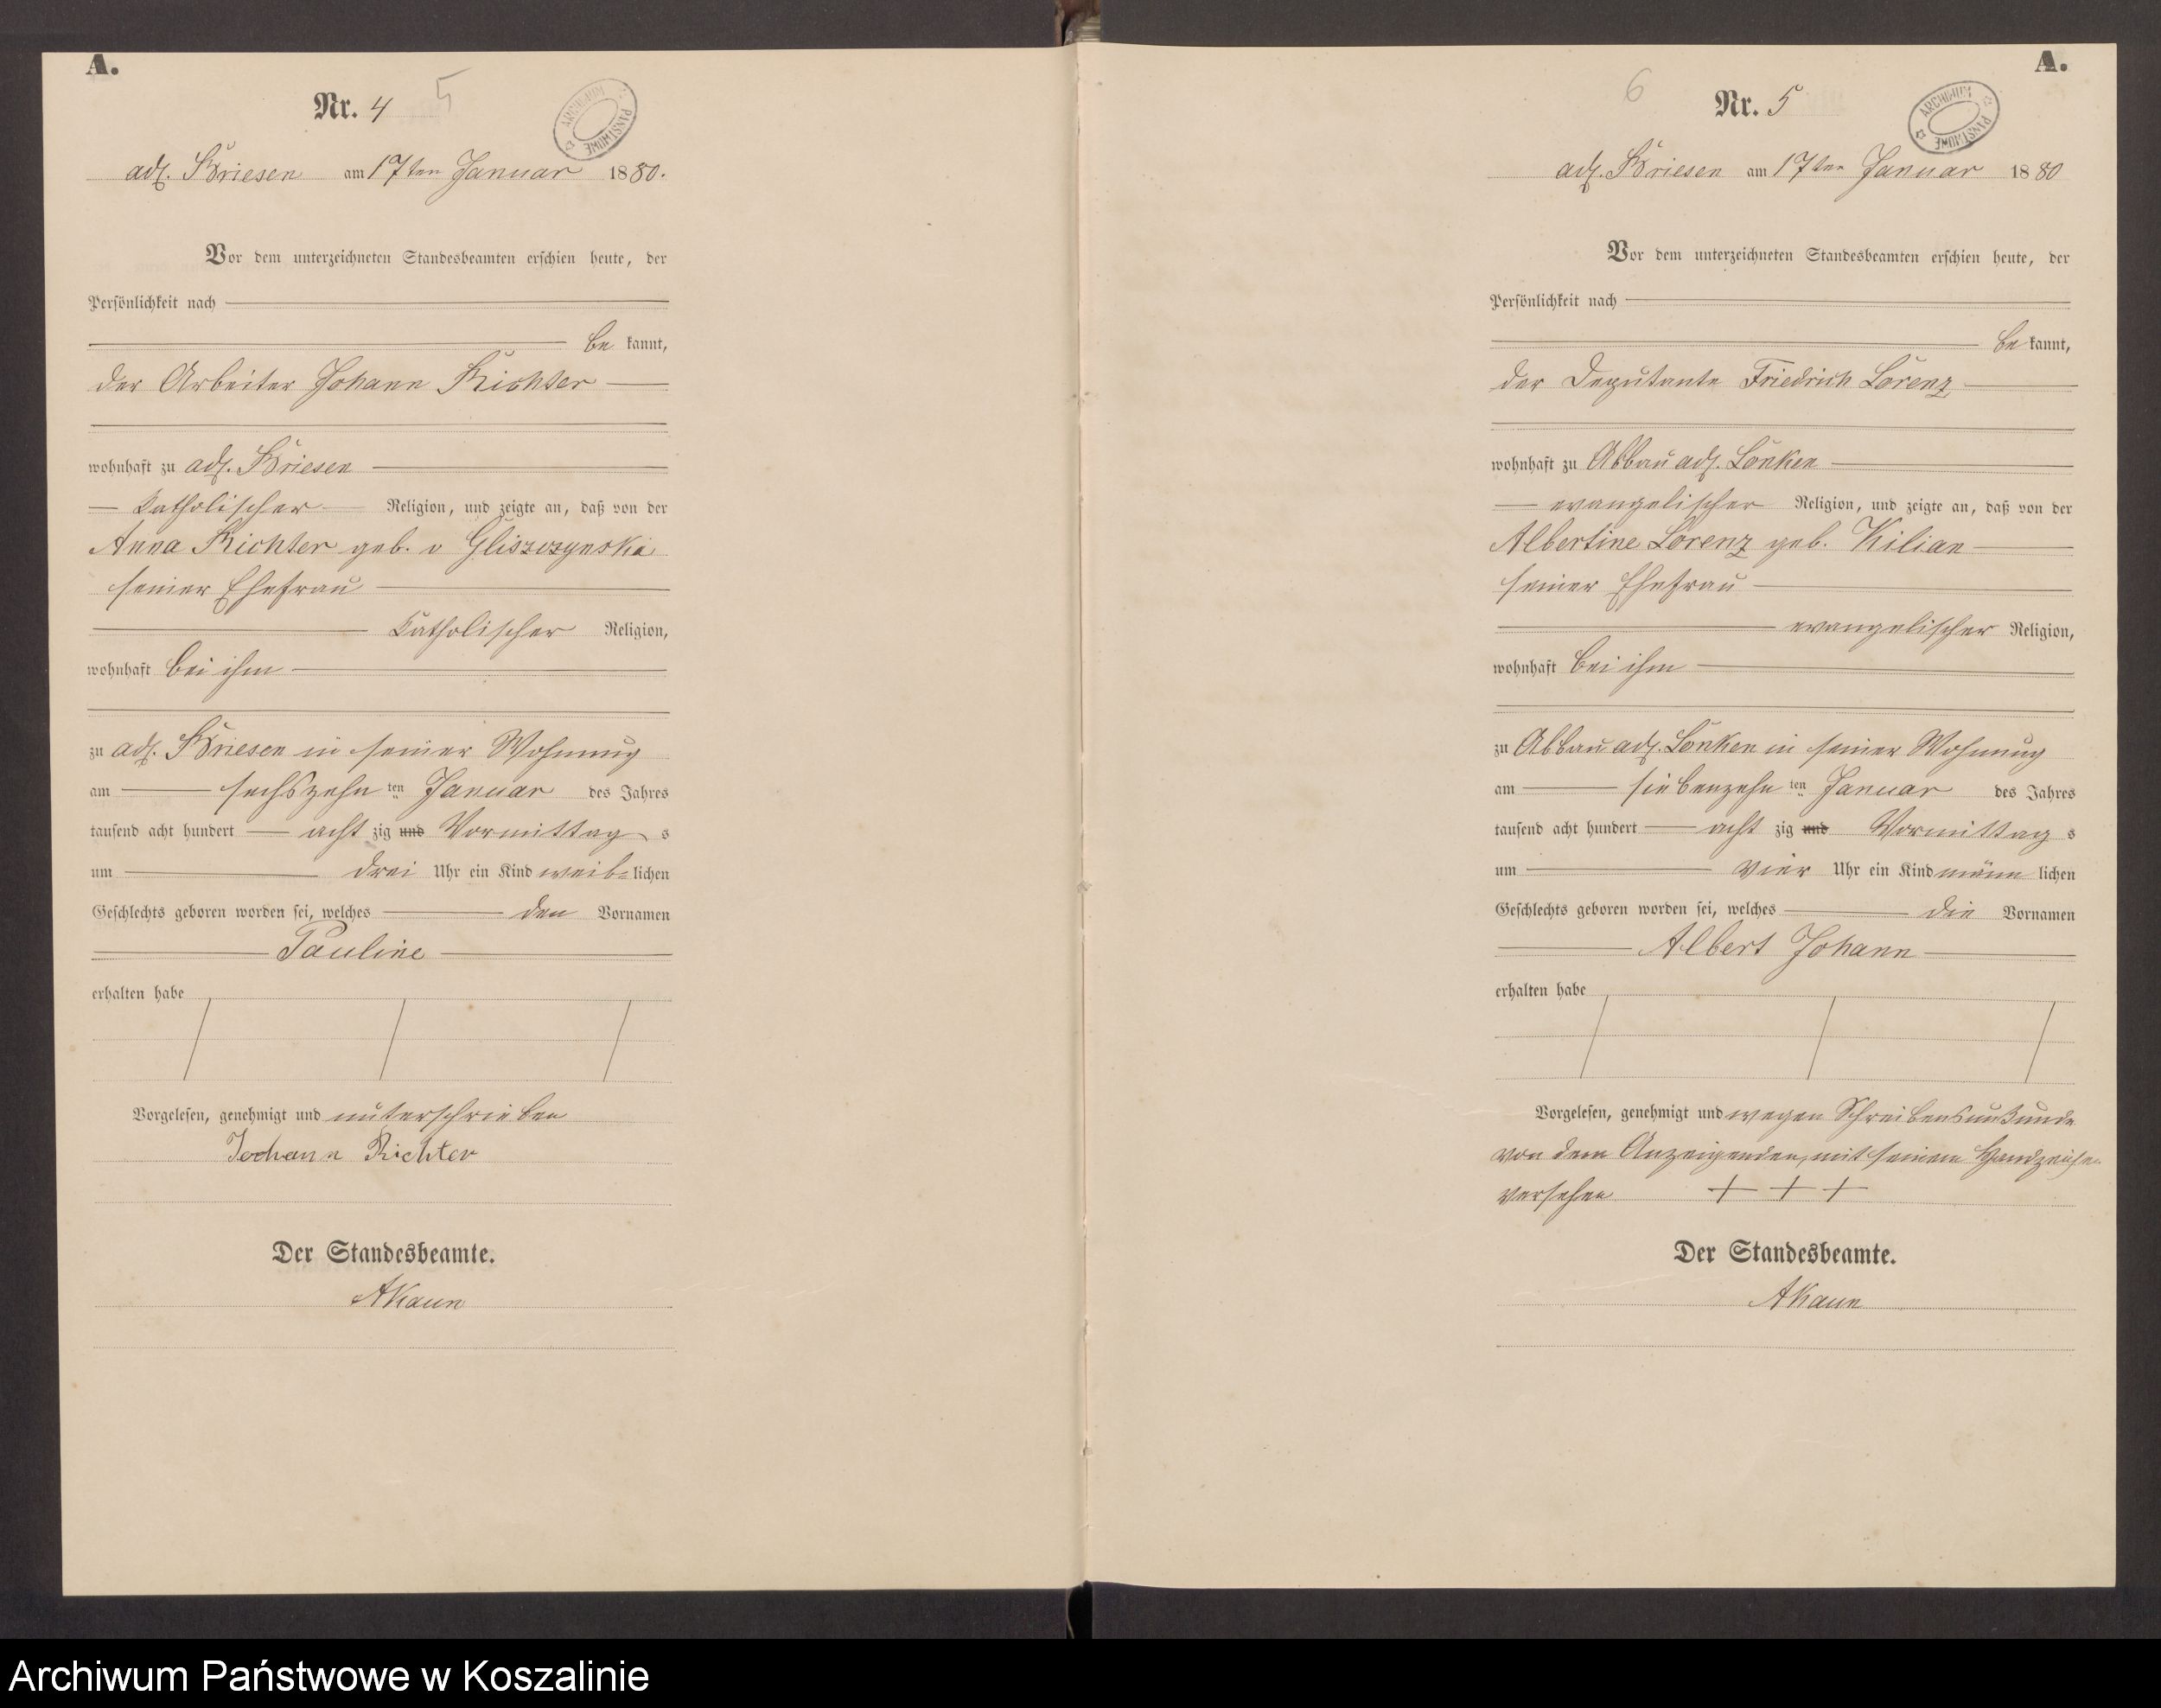 A.
Nr. 4 5
ARCHIWUM PAŃSTWOWE
adl. Briesen am 17ten Januar 1880.
Vor dem unterzeichneten Standesbeamten erschien heute, der
Persönlichkeit nach
be kannt,
der Arbeiter Johann Richter
wohnhaft zu adl. Briesen
katholischer Religion, und zeigte an, daß von der
Anna Richter geb. v Gliszczynska
seiner Ehefrau
katholischer Religion,
wohnhaft bei ihm
zu adl. Briesen in seiner Wohnung
am sechszehn ten Januar des Jahres
tausend acht hundert acht zig und Vormittag s
um drei Uhr ein Kind weib=lichen
Geschlechts geboren worden sei, welches den Vornamen
Pauline
erhalten habe
Vorgelesen, genehmigt und unterschrieben
Johann Richter
Der Standesbeamte.
A.
6 Nr. 5
ARCHIWUM PAŃSTWOWE
adl. Briesen am 17ten Januar 1880
Vor dem unterzeichneten Standesbeamten erschien heute, der
Persönlichkeit nach
be kannt,
der Deputante Friedrich Lorenz
wohnhaft zu Abbau adl. Lonken
evangelischer Religion, und zeigte an, daß von der
Albertine Lorenz geb. Kilian
seiner Ehefrau
evangelischer Religion,
wohnhaft bei ihm
zu Abbau adl. Lonken in seiner Wohnung
am siebenzehn ten Januar des Jahres
tausend acht hundert acht zig und Vormittag s
um vier Uhr ein Kind männ lichen
Geschlechts geboren worden sei, welches die Vornamen
Albert Johann
erhalten habe
Vorgelesen, genehmigt und wegen Schreibensunkunde
von dem Anzeigenden, mit seinem Handzeichen
versehen + + +
Der Standesbeamte.
Archiwum Państwowe w Koszalinie